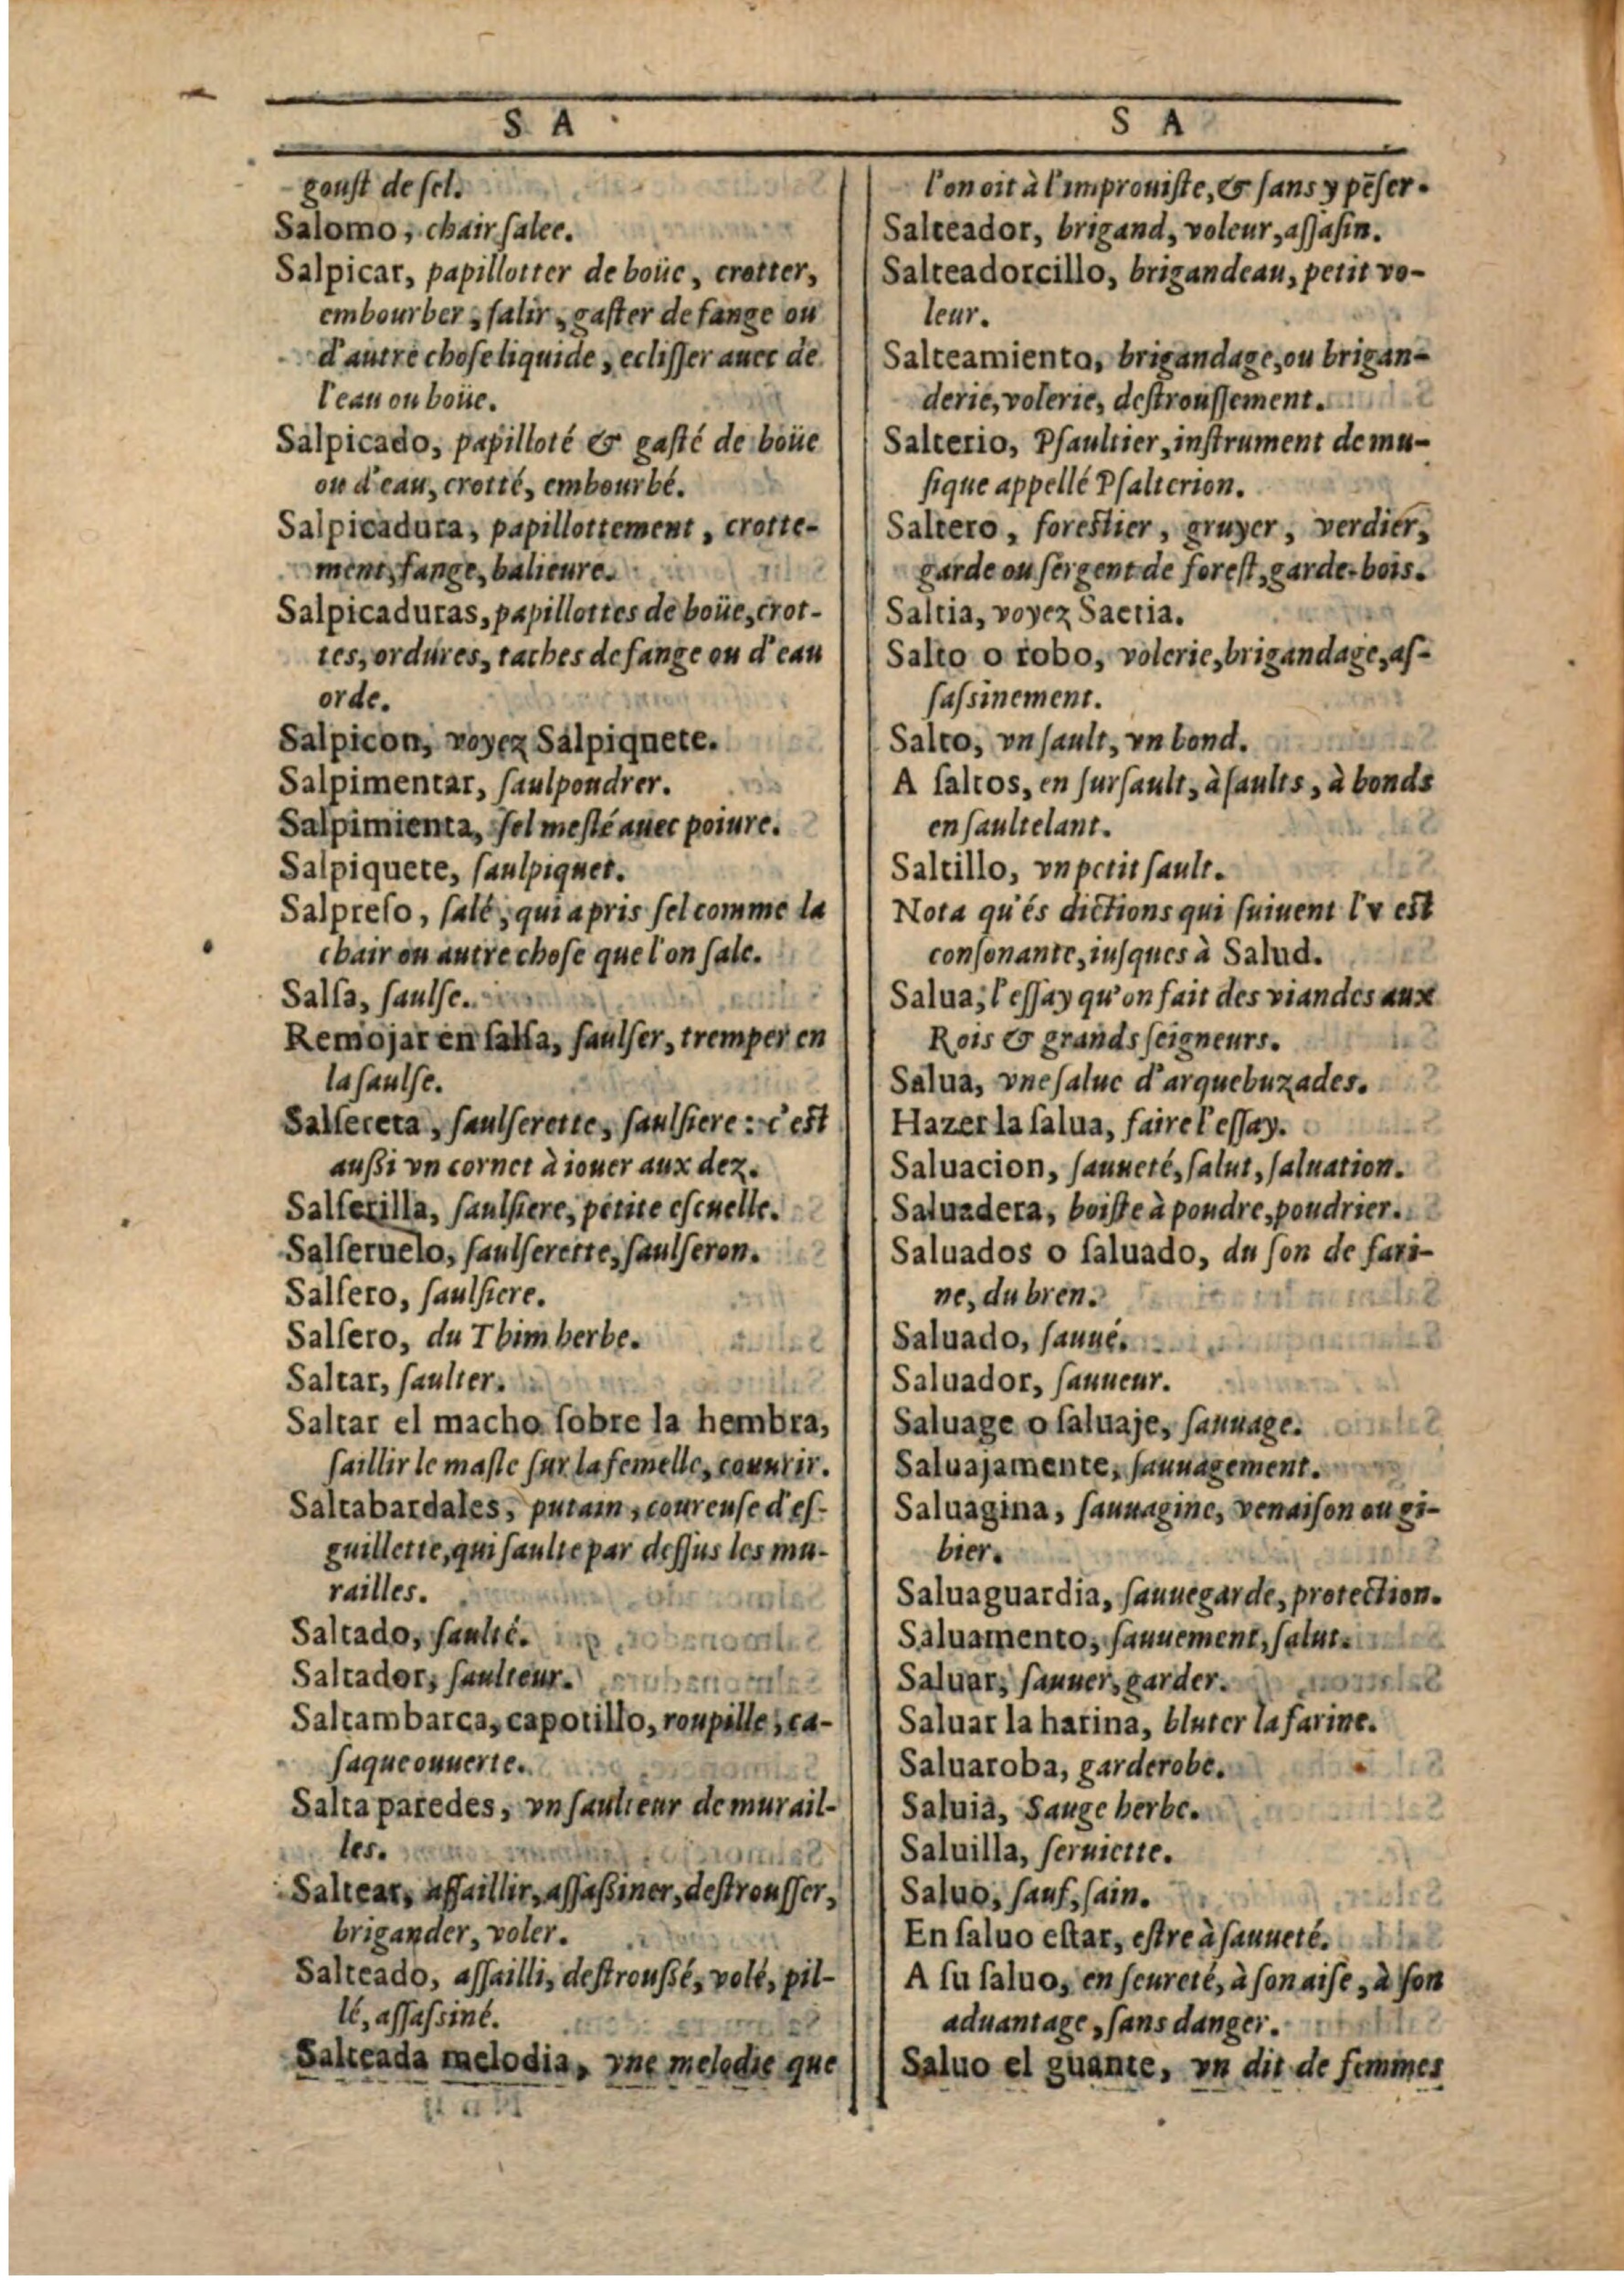 S A
goust de sel.
Salomo, chair salee.
Salpicar, papillotter de boüe, crotter,
embourber, salir, gaster de fange ou
d'autre chose liquide, eclisser auec de
l'eau ou boüe.
Salpicado, papilloté & gasté de boüe
ou d'eau, crotté, embourbé.
Salpicadura, papillottement, crotte-
ment, fange, balieure.
Salpicaduras, papillottes de boüe, crot-
tes, ordures, taches de fange ou d'eau
orde.
Salpicon, voyez Salpiquete.
Salpimentar, saulpoudrer.
Salpimienta, sel meslé auec poiure.
Salpiquete, saulpiquet.
Salpreſo, salé, qui a pris sel comme la
chair ou autre chose que l'on sale.
Salſa, saulse.
Remojar en ſalſa, saulser, tremper en
la saulse.
Salſereta, saulserette, saulsiere: c'est
außi vn cornet à iouer aux dez.
Salſerilla, saulsiere, petite escuelle.
Salſeruelo, saulserette, saulseron.
Salſero, saulsiere.
Salſero, du Thim herbe.
Saltar, saulter.
Saltar el macho ſobre la hembra,
saillir le masle sur la femelle, couurir.
Saltabardales, putain, coureuse d'es-
guillette, qui saulte par dessus les mu-
railles.
Saltado, saulté.
Saltador, saulteur.
Saltambarca, capotillo, roupille, ca-
saque ouuerte.
Salta paredes, vn saulteur de murail-
les.
Saltear, assaillir, assaßiner, destrousser,
brigander, voler.
Salteado, assailli, destroußé, volé, pil-
lé, assassiné.
Salteada melodia, vne melodie que
S A
l'on oit à l'improuiste, & sans y pẽser.
Salteador, brigand, voleur, assasin.
Salteadorcillo, brigandeau, petit vo-
leur.
Salteamiento, brigandage, ou brigan-
derie, volerie, destroussement.
Salterio, Psaultier, instrument de mu-
sique appellé Psalterion.
Saltero, forestier, gruyer, verdier,
garde ou sergent de forest, garde-bois.
Saltia, voyez Saetia.
Salto o robo, volerie, brigandage, as-
sassinement.
Salto, vn sault, vn bond.
A ſaltos, en sursault, à saults, à bonds
en saultelant.
Saltillo, vn petit sault.
Nota qu'és dictions qui suiuent l'v est
consonante, iusques à Salud.
Salua, l'essay qu'on fait des viandes aux
Rois & grands seigneurs.
Salua, vne salue d'arquebuzades.
Hazer la ſalua, faire l'essay.
Saluacion, sauueté, salut, saluation.
Saluadera, boiste à poudre, poudrier.
Saluados o ſaluado, du son de fari-
ne, du bren.
Saluado, sauué.
Saluador, sauueur.
Saluage o ſaluaje, sauuage.
Saluajamente, sauuagement.
Saluagina, sauuagine, venaison ou gi-
bier.
Saluaguardia, sauuegarde, protection.
Saluamento, sauuement, salut.
Saluar, sauuer, garder.
Saluar la harina, bluter la farine.
Saluaroba, garderobe.
Saluia, Sauge herbe.
Saluilla, seruiette.
Saluo, sauf, sain.
En ſaluo eſtar, estre à sauueté.
A ſu ſaluo, en seureté, à son aise, à son
aduantage, sans danger.
Saluo el guante, vn dit de femmes